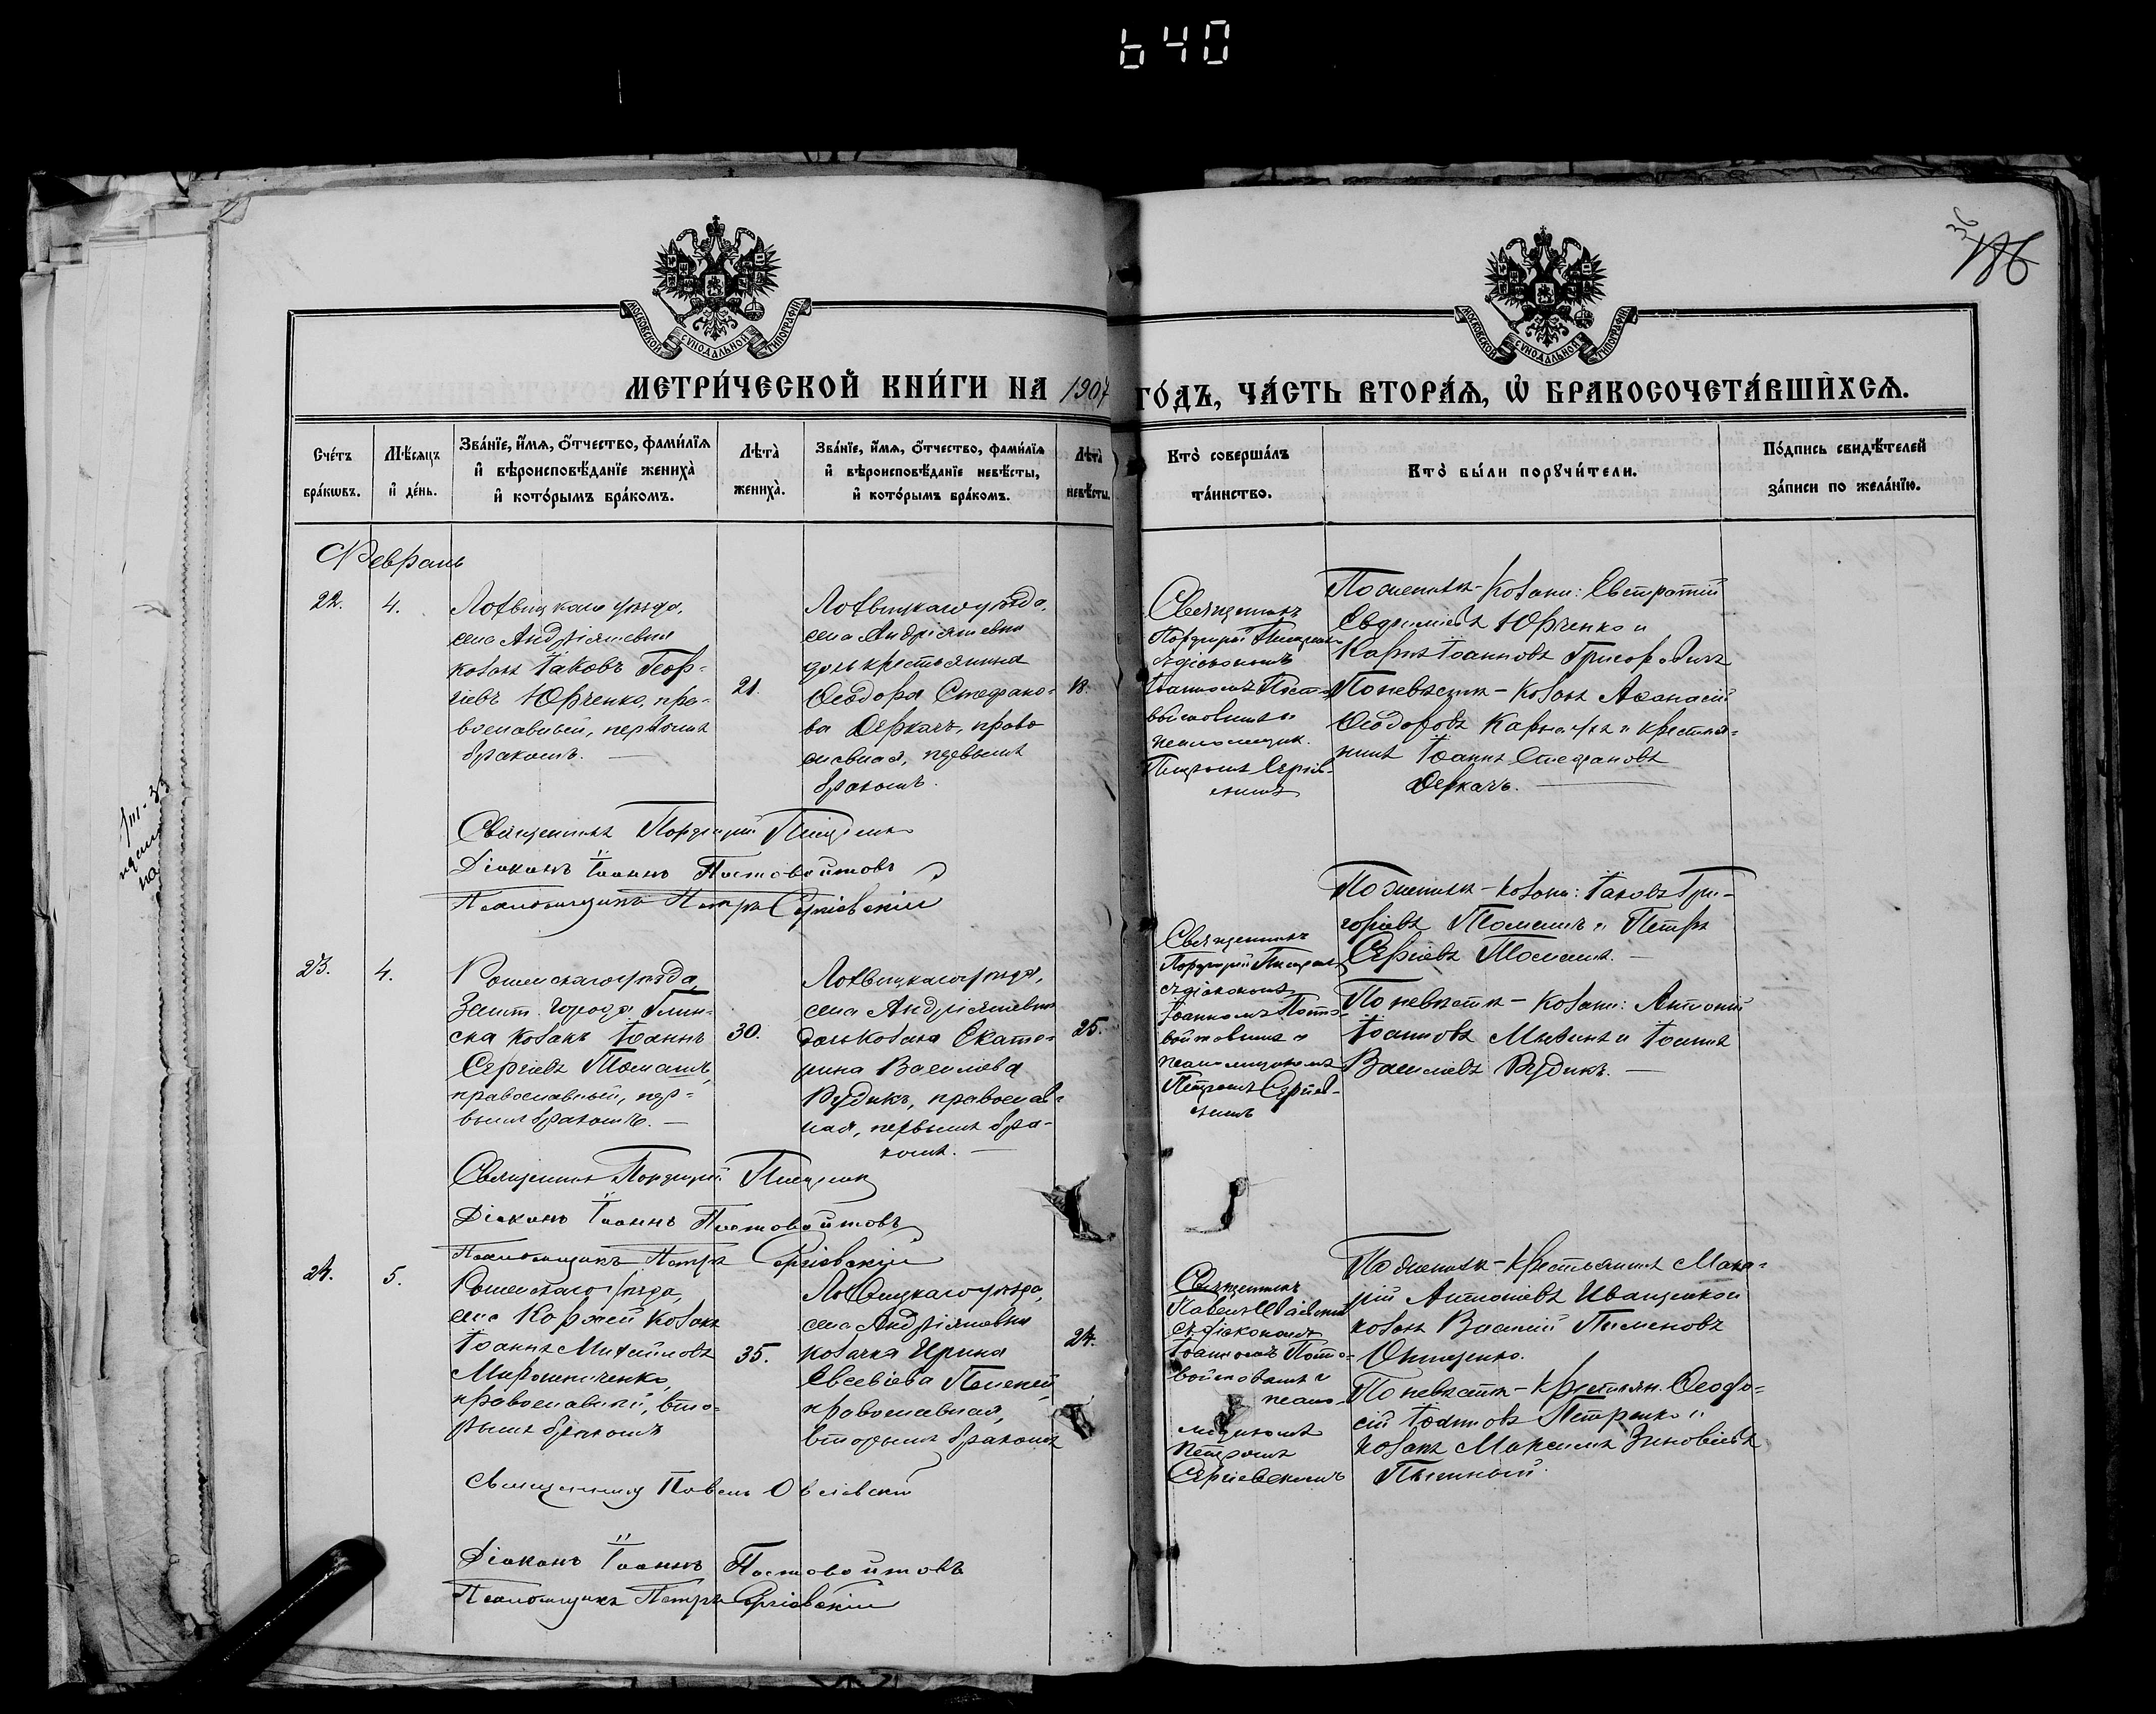 640
36
186
МОСКОВСКОЙ СѴНОДАЛЬНОЙ ТИПОГРАФІИ
МОСКОВСКОЙ СѴНОДАЛЬНОЙ ТИПОГРАФІИ
МЕТРИ́ЧЕСКОЙ КНИ́ГИ НА 1907 ГО́ДЪ, ЧА́СТЬ ВТОРА́Ѧ, Ѽ БРАКОСОЧЕТА́ВШИХСѦ.
Сче́тъ бра́кѡвъ.
Мѣ́сяцъ и҆ де́нь.
Зва́нїе, и҆́мѧ, о҆́тчество, фами́лїѧ
и҆ вѣроисповѣ́данїе жениха̀
и҆ кото́рымъ бра́комъ.
Лѣта̀ жениха̀.
Зва́нїе, и҆́мѧ, о҆́тчество, фами́лїѧ
и҆ вѣроисповѣ́данїе невѣ́сты,
и҆ кото́рымъ бра́комъ.
Лѣта̀ невѣ́сты.
Кто̀ соверша́лъ
та́инство.
Кто̀ бы́ли порꙋчи́тели.
По́дпись свидѣ́телей
за́писи по жела́нїю.
Февраль
22.
4.
Лохвицкаго уѣзда,
села Андріяшевки
козакъ Іаковъ Геор-
гіевъ Юрченко, пра-
вославный, первымъ
бракомъ.
21.
Лохвицкаго уѣзда,
села Андріяшевки
дочь крестьянина
Ѳеодора Стефано-
ва Деркачъ, право
славная, первымъ
бракомъ.
18.
Священникъ
Порфирій
съ діакономъ
Іоанномъ Посто-
войтовымъ и
псаломщик.
Петромъ Сергіев-
скимъ
По женихѣ - козаки: Евстратій
Евфиміевъ Юрченко и
Іоанновъ
По невѣстѣ - козакъ Аѳанасій
Ѳеодоровъ и крестья-
нинъ Іоаннъ Стефановъ
Деркачъ.
Священникъ Порфирій
Діаконъ Іоаннъ Постовойтовъ
Псаломщикъ Петръ Сергіевскій
23.
4.
Роменскаго уѣзда,
Зашт. города Глин-
ска козакъ Іоаннъ
Сергіевъ Томашъ,
православный, пер-
вымъ бракомъ.
30.
Лохвицкаго уѣзда,
села Андріяшевки
дочь козака Екате-
рина Василіева
Рудикъ, православ-
ная, первымъ бра-
комъ.
25.
Священникъ
Порфирій
съ діакономъ
Іоанномъ Посто-
войтовымъ и
псаломщикомъ
Петромъ Сергіев-
скимъ
По женихѣ - козаки: Іаковъ Гри-
горіевъ Томашъ и Петръ
Сергіевъ Томашъ.
По невѣстѣ - козаки: Антоній
Іоанновъ и Іоаннъ
Василіевъ Рудикъ.
Священникъ Порфирій
Діаконъ Іоаннъ Постовойтовъ
Псаломщикъ Петръ Сергіевскій
24.
5.
Роменскаго уѣзда,
села Коржей козакъ
Іоаннъ Михайловъ
Мирошниченко,
православный, вто-
рымъ бракомъ
35.
Лохвицкаго уѣзда,
села Андріяшевки
козачка Ирина
Евсевіева
православная,
вторымъ бракомъ
24.
Священникъ
Павелъ
съ діакономъ
Іоанномъ Посто-
войтовымъ и
псало-
мщикомъ
Петромъ
Сергіевскимъ
По женихѣ - крестьянинъ Мака-
рій Антоніевъ Иващенко и
козакъ Василій Пименовъ
Онищенко.
По невѣстѣ - крестьян. Ѳеодо-
сій Іоанновъ Петренко и
козакъ Максимъ Зиновіевъ
Священникъ Павелъ
Діаконъ Іоаннъ Постовойтовъ
Псаломщикъ Петръ Сергіевскій